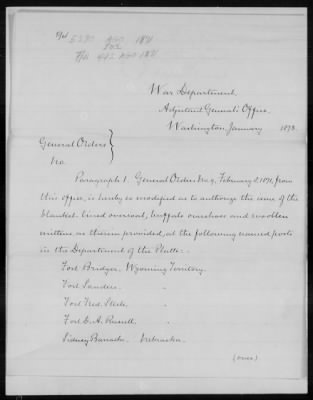 5290 AGO 1871
442 AGO 1871
War Department.
Adjutant General's Office.
Washington January 1873.
General Orders }
No.
Paragraph 1. General Orders No. 9, February 2, 1871, from
this office, is hereby so modified as to authorize the issue of the
blanket-lined overcoat, buffalo overshoes and woollen
mittens as therein provided, at the following named posts
in the Department of the Platte:-
Fort Bridger, Wyoming Territory.
Fort Sanders. "
Fort Fred. Steele. "
Fort D. A. Russell. "
Sidney Barracks. Nebraska.
(over)